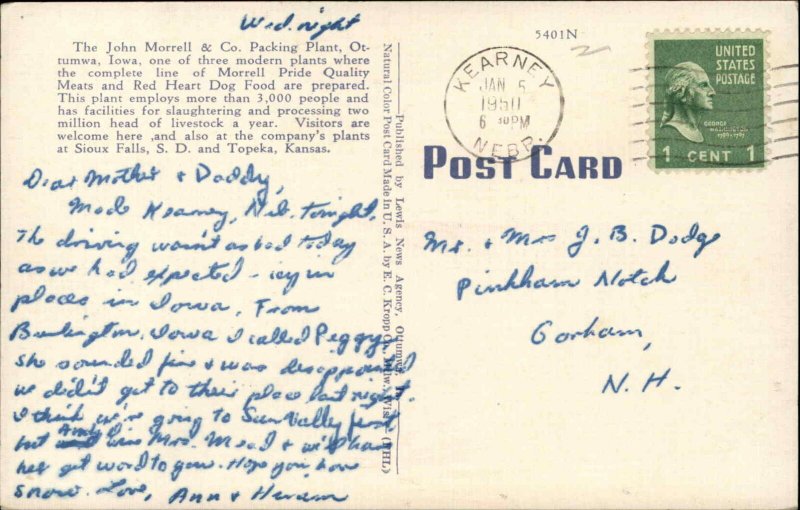 Wed. night
The John Morrell & Co. Packing Plant, Ot-
tumwa, Iowa, one of three modern plants where
the complete line of Morrell Pride Quality
Meats and Red Heart Dog Food are prepared.
This plant employs more than 3,000 people and
has facilities for slaughtering and processing two
million head of livestock a year. Visitors are
welcome here ,and also at the company's plants
at Sioux Falls, S. D. and Topeka, Kansas.
Dear Mother & Daddy,
Made Kearney, Neb. tonight.
The driving wasn't as bad today
as we had expected - icy in
places in Iowa, From
Burlington, Iowa I called Peggy,
she sounded fine & was disappointed
we didn't get to their place last night.
I think we're going to Sun Valley first
but wire Mrs. Mead & will have
her get word to you. Hope you have
snow. Love, Ann & Hiram
Published by Lewis News Agency, Ottumwa, Ia.
Natural Color Post Card Made in U. S. A. by E. C. Kropp Co., Milw., Wis. (NHL)
5401N
KEARNEY
JAN 5
1950
6 30PM
NEBR.
UNITED
STATES
POSTAGE
GEORGE
WASHINGTON
1789-1797
1 CENT 1
POST CARD
Mr. & Mrs J. B. Dodge
Pinkham Notch
Gorham,
N. H.